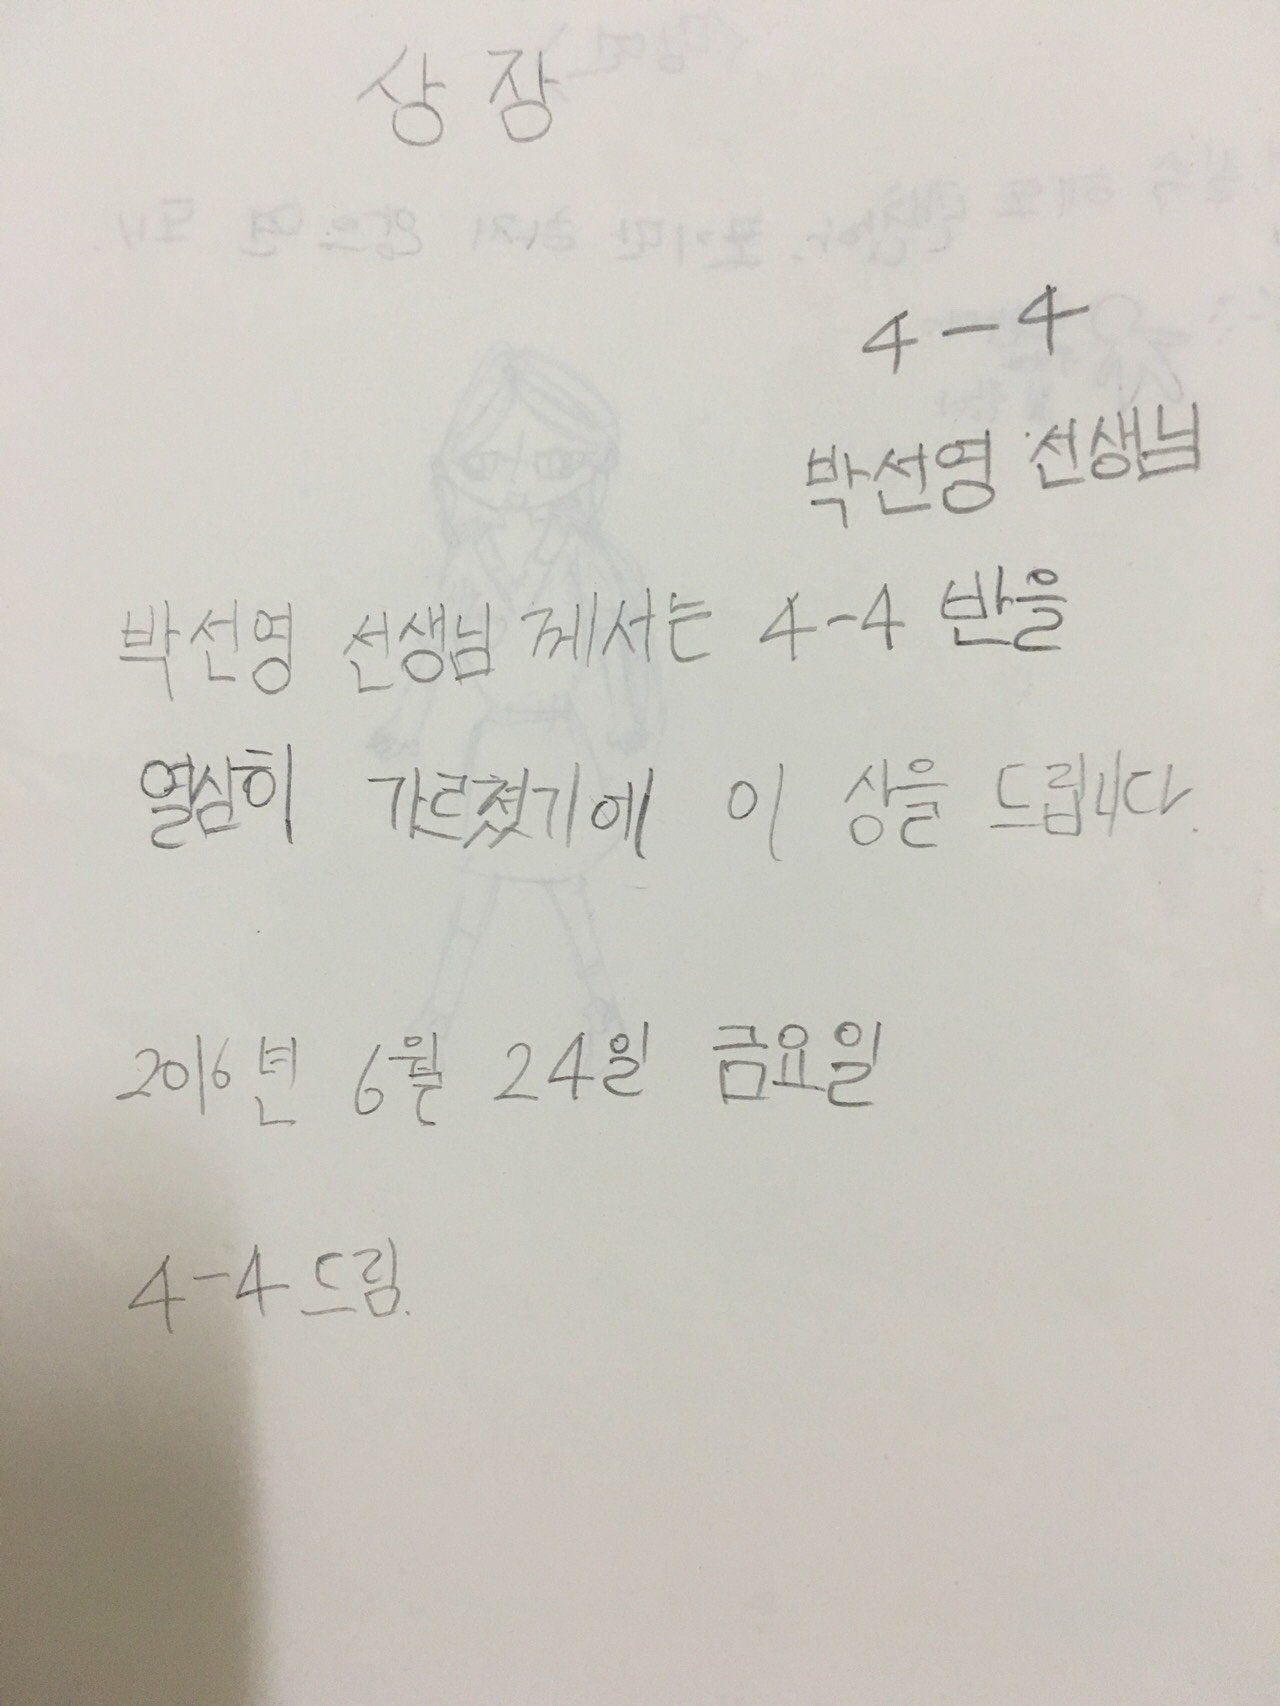 상장
4-4
박선영 선생님
박선영 선생님 께서는 4-4 반을
열심히 가르쳤기에 이 상을 드립니다.
2016년 6월 24일 금요일
4-4 드림.